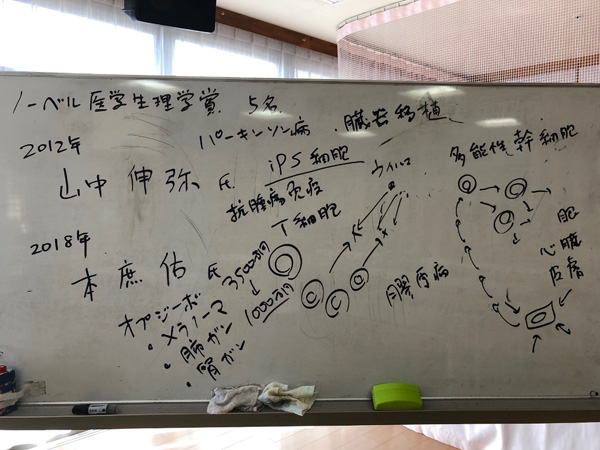 ノーベル医学生理学賞 5名
2012年
山中 伸弥 氏
パーキンソン病
臓器移植
iPS細胞
多能性幹細胞
抗腫瘍免疫
T細胞
ウイルス
2018年
本庶 佑 氏
3500万円
↓
1000万円
オプジーボ
・メラノーマ
・肺ガン
・腎ガン
心臓
皮膚